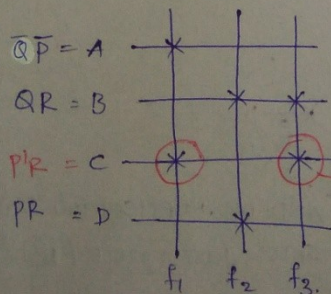 Q̅ P̅ = A
QR = B
P'R = C
PR = D
f₁ f₂ f₃.